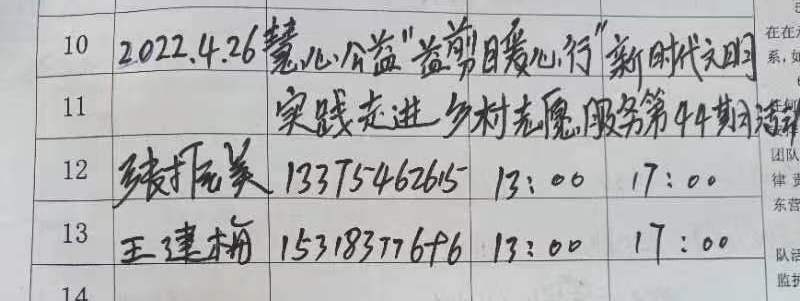 10 2022.4.26 慧心公益"益剪暖心行"新时代文明
11 实践走进乡村志愿服务第44期活动
12 张振美 13375462615 13:00 17:00
13 王建梅 15318377696 13:00 17:00
14
在在
系,如
团队
律 责
东营
队活
监护